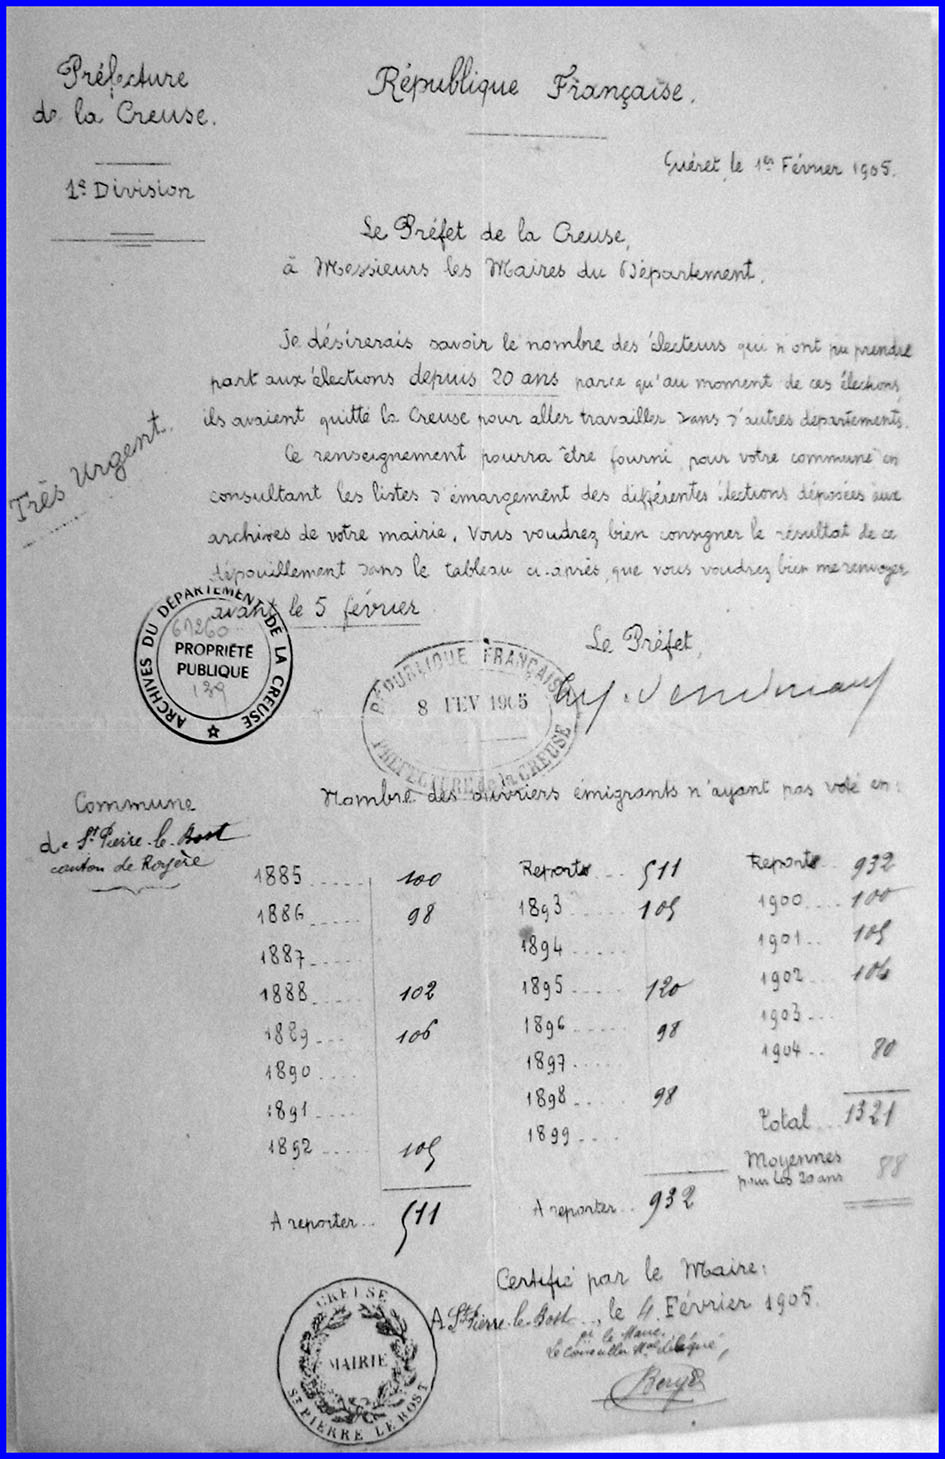 Préfecture
de la Creuse.
République Française.
1e Division
Guéret, le 1er Février 1905.
Le Préfet de la Creuse,
à Messieurs les Maires du Département.
Très Urgent.
Je désirerais savoir le nombre des électeurs qui n'ont pu prendre
part aux élections depuis 20 ans parce qu'au moment de ces élections,
ils avaient quitté la Creuse pour aller travailler dans d'autres départements.
Ce renseignement pourra être fourni, pour votre commune en
consultant les listes d'émargement des différentes élections déposées aux
archives de votre mairie. Vous voudrez bien consigner le résultat de ce
dépouillement dans le tableau ci-après, que vous voudrez bien me renvoyer
avant le 5 février
ARCHIVES DU DÉPARTEMENT DE LA CREUSE
PROPRIÉTÉ
PUBLIQUE
139
Le Préfet,
RÉPUBLIQUE FRANÇAISE
8 FEV 1905
PRÉFECTURE de la CREUSE
Nombre des ouvriers émigrants n'ayant pas voté en:
Commune
de St Pierre-le-Bost
canton de Royère
1885 ..... 100
1886 ..... 98
1887 .....
1888 ..... 102
1889 .... 106
1890 ....
1891 ....
1892 ..... 105
A reporter... 511
Reports ... 511
1893 ..... 105
1894 .....
1895 ..... 120
1896 ..... 98
1897 .....
1898 .... 98
1899 ....
A reporter... 932
Reports .. 932
1900 .... 100
1901 .. 105
1902 .... 104
1903 ...
1904 .. 80
Total ... 1321
Moyennes
pour les 20 ans 88
Certifié par le Maire:
A St Pierre-le-Bost, le 4 Février 1905.
pr le Maire
Le Conseiller Mal délégué,
CREUSE
MAIRIE
ST PIERRE LE BOST